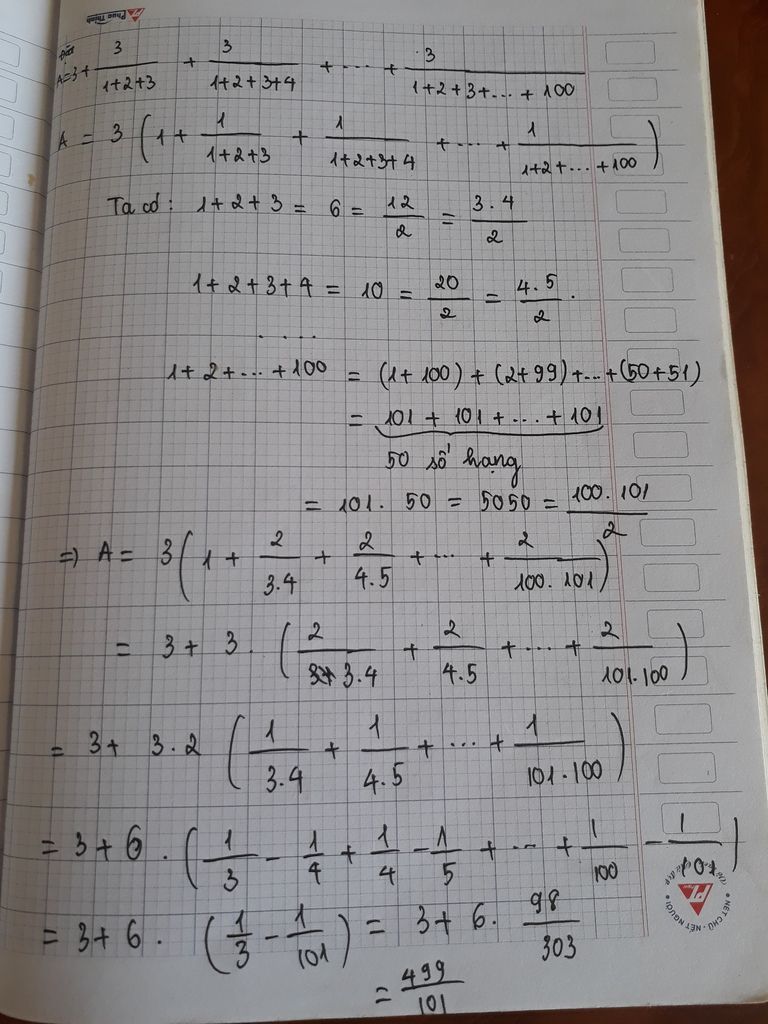 Phúc Thịnh
Đặt
A = 3 + 3/(1+2+3) + 3/(1+2+3+4) + ... + 3/(1+2+3+...+100)
A = 3 (1 + 1/(1+2+3) + 1/(1+2+3+4) + ... + 1/(1+2+...+100))
Ta có: 1+2+3 = 6 = 12/2 = 3.4/2
1+2+3+4 = 10 = 20/2 = 4.5/2.
....
1+2+...+100 = (1+100) + (2+99) +...+ (50+51)
= 101 + 101 + ... + 101
50 số hạng
= 101. 50 = 5050 = 100.101/2
=> A = 3 (1 + 2/3.4 + 2/4.5 + ... + 2/100.101)
= 3 + 3. (2/3.4 + 2/4.5 + ... + 2/101.100)
= 3 + 3.2 (1/3.4 + 1/4.5 + ... + 1/101.100)
= 3 + 6. (1/3 - 1/4 + 1/4 - 1/5 + ... + 1/100 - 1/101)
= 3 + 6. (1/3 - 1/101) = 3 + 6. 98/303
= 499/101
NÉT CHỮ - NẾT NGƯỜI